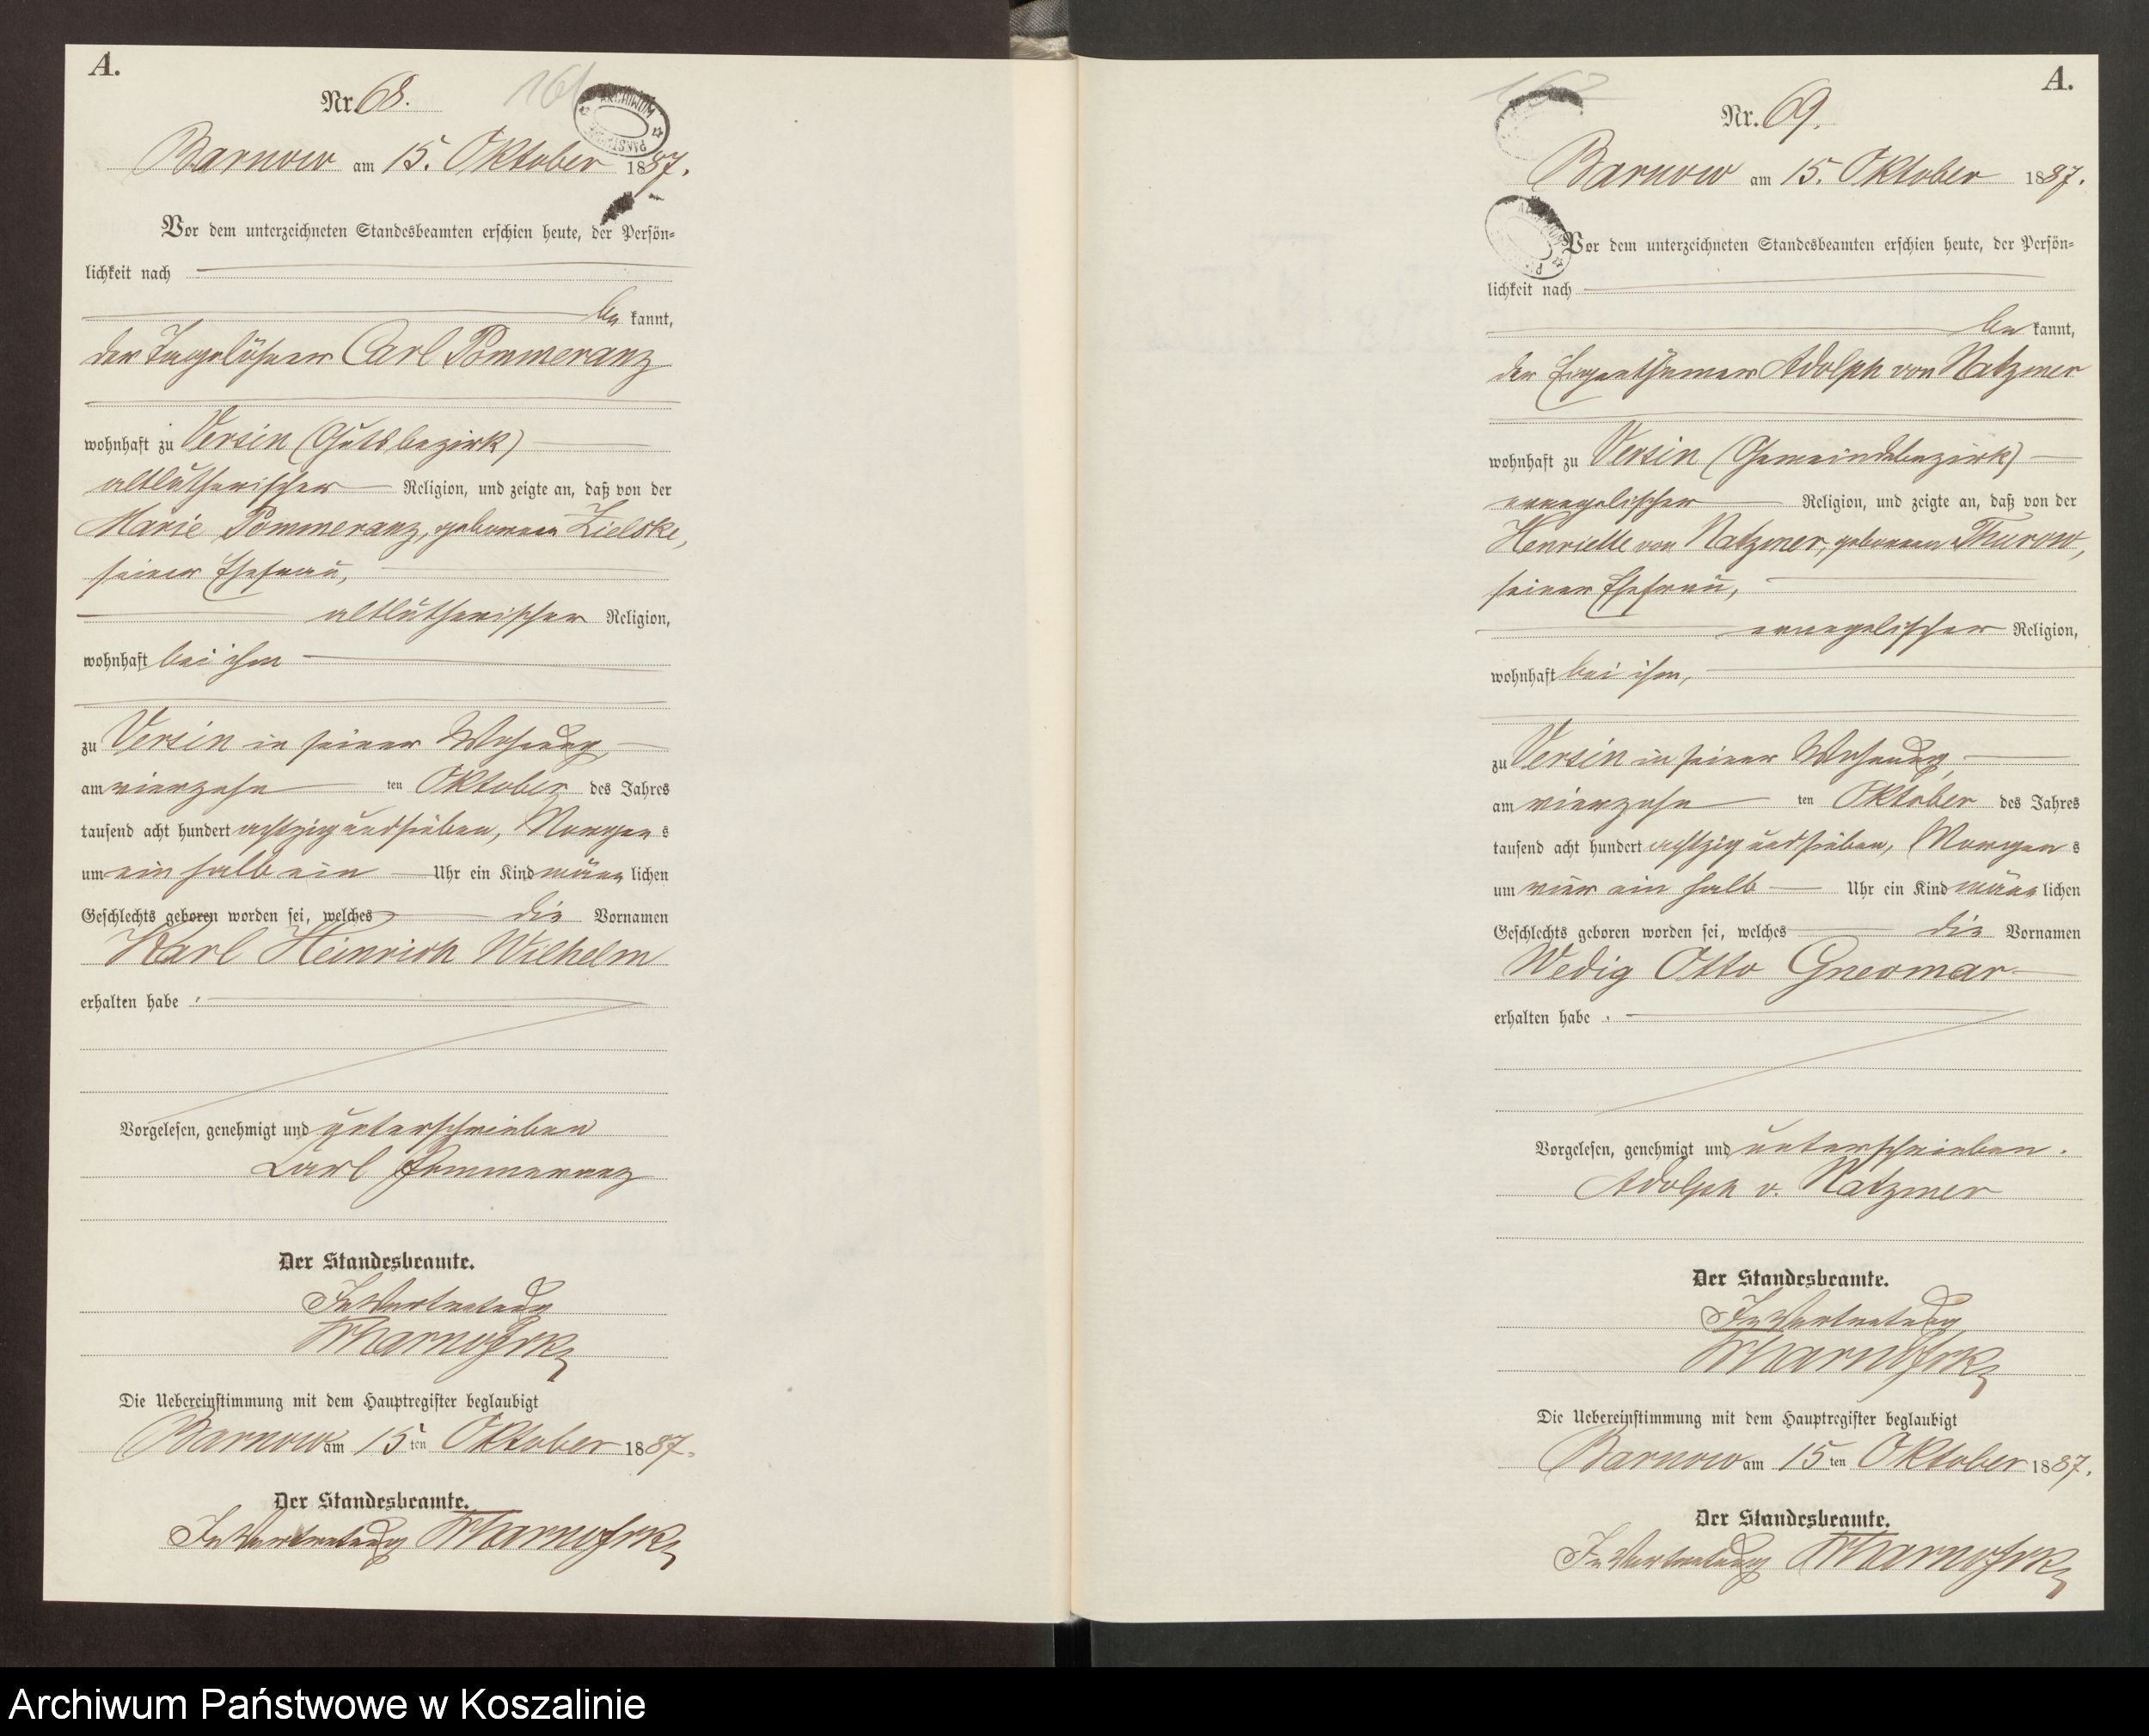 A.
Nr. 68.
161
ARCHIWUM
Barnow am 15. Oktober 1887.
Vor dem unterzeichneten Standesbeamten erschien heute, der Persön=
lichkeit nach
be kannt,
der Tagelöhner Carl Pommeranz
wohnhaft zu Versin (Gutsbezirk)
altlutherischer Religion, und zeigte an, daß von der
Marie Pommeranz, geborenen Zielske,
seiner Ehefrau,
altlutherischer Religion,
wohnhaft bei ihm
zu Versin in seiner Wohnung
am vierzehn ten Oktober des Jahres
tausend acht hundert achtzig und sieben, Morgen s
um ein halb ein Uhr ein Kind männ lichen
Geschlechts geboren worden sei, welches die Vornamen
Karl Heinrich Wilhelm
erhalten habe.
Vorgelesen, genehmigt und unterschrieben
Carl Pommeranz
Der Standesbeamte.
In Vertretung
Die Uebereinstimmung mit dem Hauptregister beglaubigt
Barnow am 15 ten Oktober 1887.
Der Standesbeamte.
In Vertretung
A.
162
Nr. 69.
Barnow am 15. Oktober 1887.
Vor dem unterzeichneten Standesbeamten erschien heute, der Persön=
lichkeit nach
be kannt,
der Eigenthümer Adolph von Natzmer
wohnhaft zu Versin (Gemeindebezirk)
evangelischer Religion, und zeigte an, daß von der
Henriette von Natzmer, geborenen Thurow,
seiner Ehefrau,
evangelischer Religion,
wohnhaft bei ihm,
zu Versin in seiner Wohnung
am vierzehn ten Oktober des Jahres
tausend acht hundert achtzig und sieben, Morgen s
um vier ein halb Uhr ein Kind männ lichen
Geschlechts geboren worden sei, welches die Vornamen
Wedig Otto Gneomar
erhalten habe.
Vorgelesen, genehmigt und unterschrieben.
Adolph v. Natzmer
Der Standesbeamte.
In Vertretung
Die Uebereinstimmung mit dem Hauptregister beglaubigt
Barnow am 15 ten Oktober 1887.
Der Standesbeamte.
In Vertretung
Archiwum Państwowe w Koszalinie